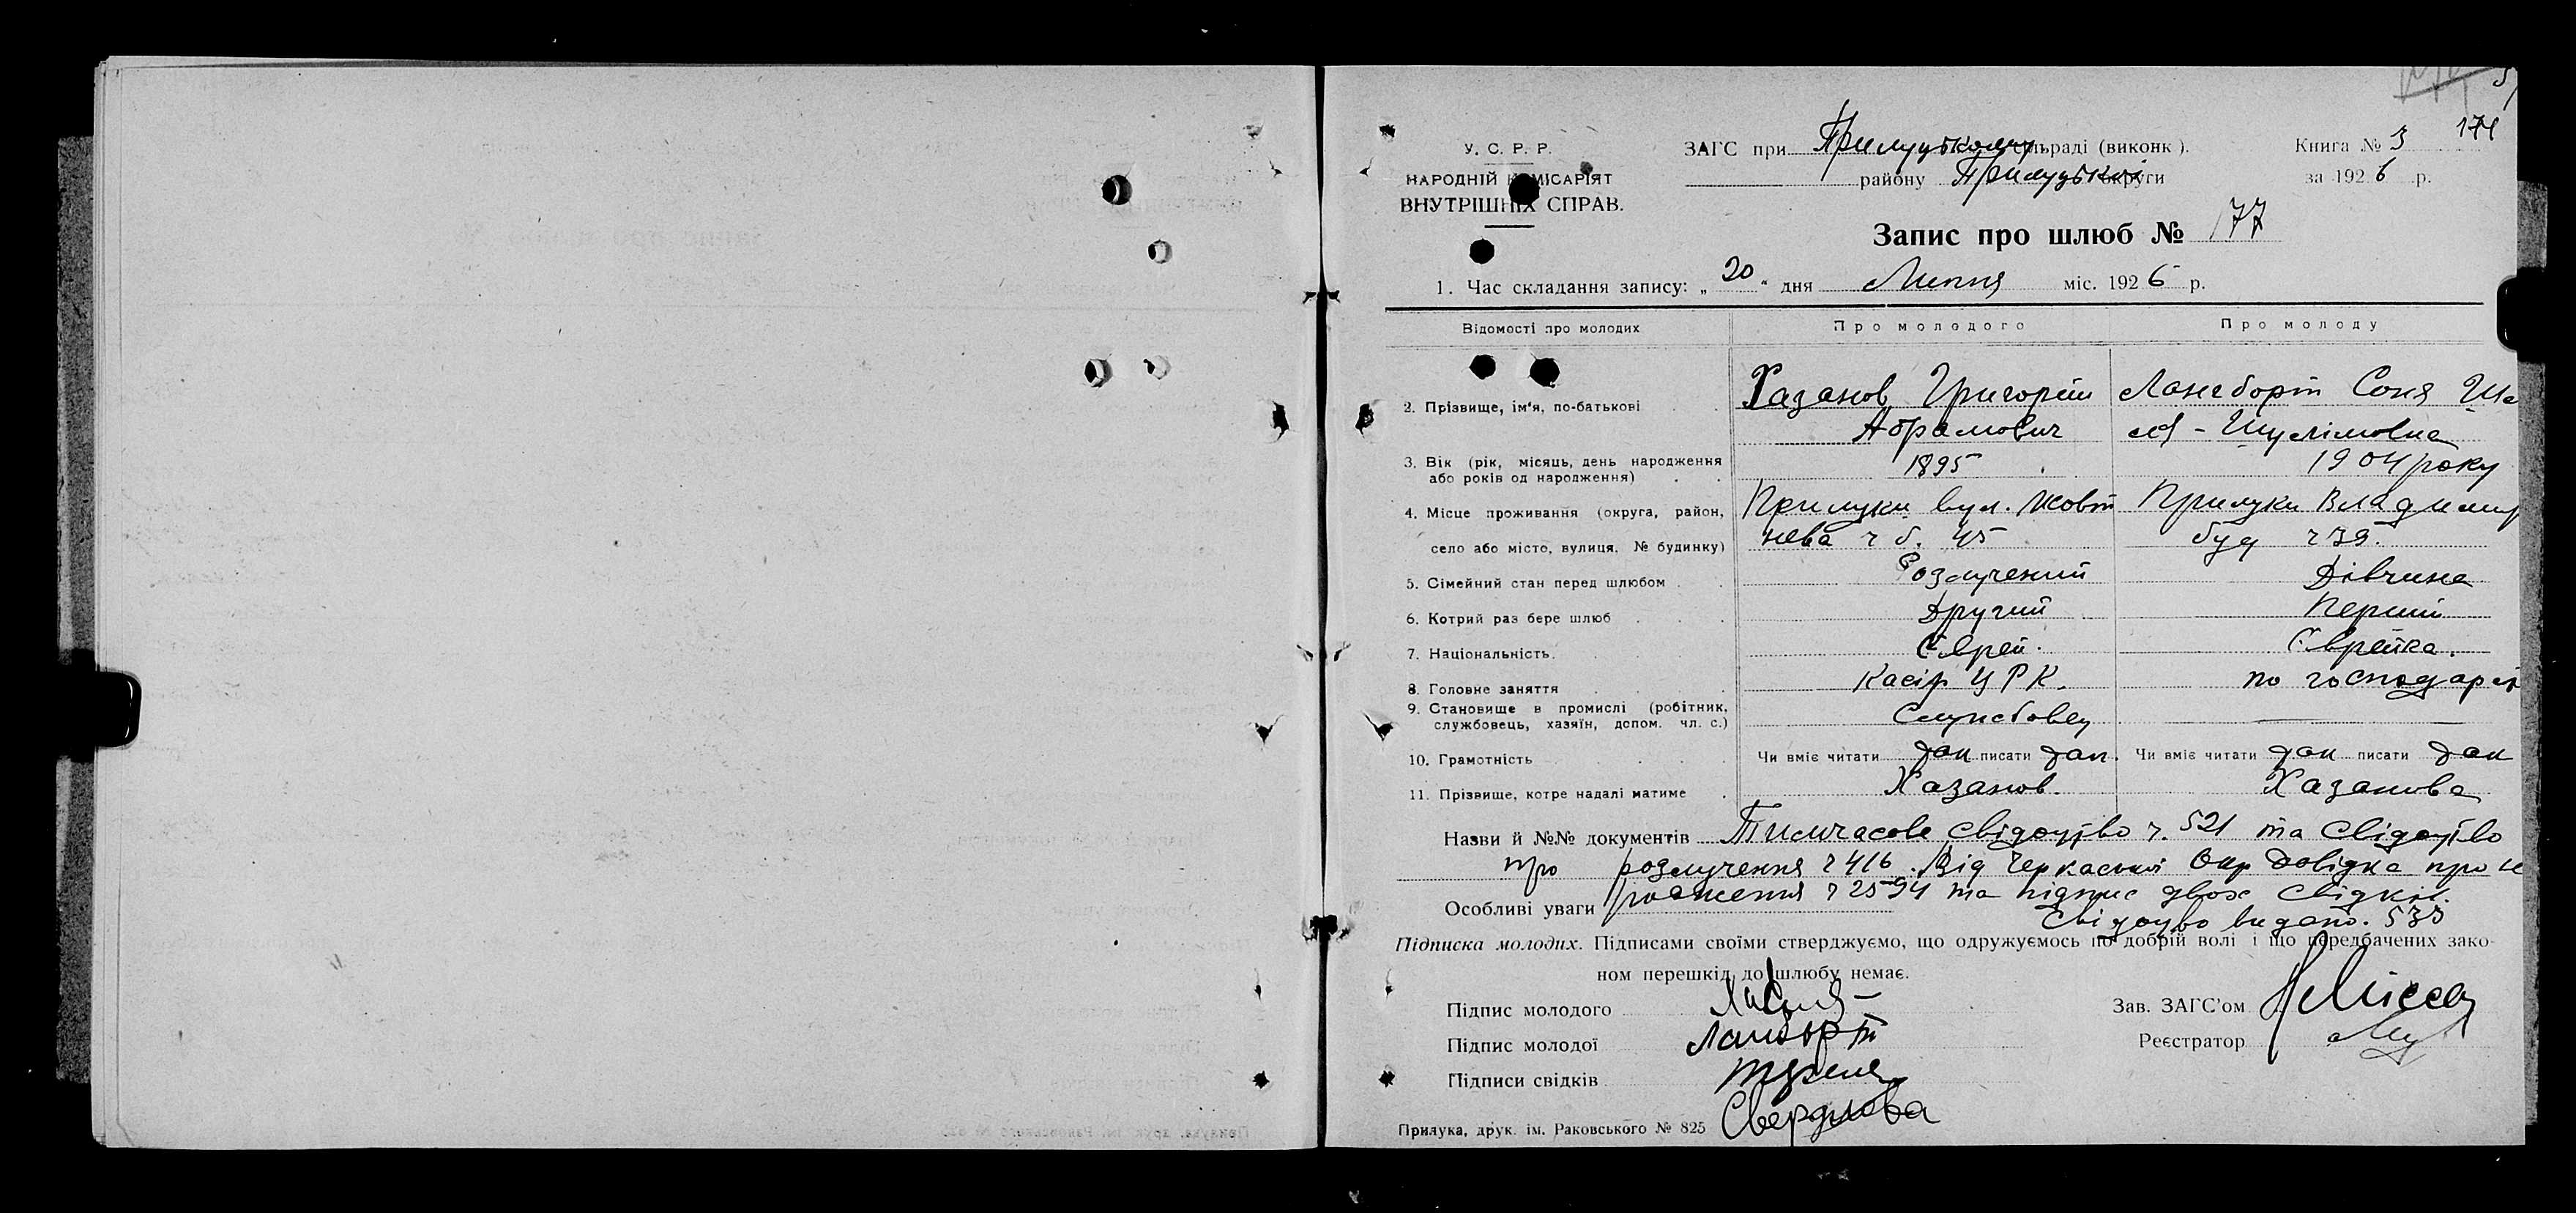 174
У. С. Р. Р.
ЗАГС при Прилуцькому сельраді (виконк).
Книга № 3
НАРОДНІЙ КОМІСАРІЯТ
району Прилуцької округи
за 1926 р.
ВНУТРІШНІХ СПРАВ.
Запис про шлюб № 177
1. Час складання запису: „20“ дня Липня міс. 1926 р.
Відомості про молодих
Про молодого
Про молоду
2. Прізвище, ім'я, по-батькові
Хазанов Григорій
Абрамович
Лангборт Соня
Шулімовна
3. Вік (рік, місяць, день народження
або років од народження)
1895
1904 року
4. Місце проживання (округа, район,
село або місто, вулиця, № будинку)
Прилуки вул. Жовт
нева ч б. 45
Прилуки Владимир
буд ч 39.
5. Сімейний стан перед шлюбом
Розлучений
Дівчина
6. Котрий раз бере шлюб
Другий
Перший
7. Національність.
Єврей.
Єврейка.
8. Головне заняття
Касір ЦРК.
по господарст
9. Становище в промислі (робітник,
службовець, хазяїн, допом. чл. с.)
Службовец
—
10. Грамотність
Чи вміє читати так писати так.
Чи вміє читати так писати так
11. Прізвище, котре надалі матиме
Хазанов.
Хазанова
Назви й №№ документів Тимчасове свідоцтво ч. 521 та свідоцтво
про розлучення ч 416. Від Черкаської Окр довідка про н
Особливі уваги родження ч 2594 та підпис двох свідків.
Свідоцтво видано. 533
Підписка молодих. Підписами своїми стверджуємо, що одружуємось по добрій волі і що передбачених зако-
ном перешкід до шлюбу немає.
Підпис молодого
Зав. ЗАГС'ом
Підпис молодої Лангборт
Реєстратор
Підписи свідків
Свердлова
Прилука, друк. ім. Раковського № 825